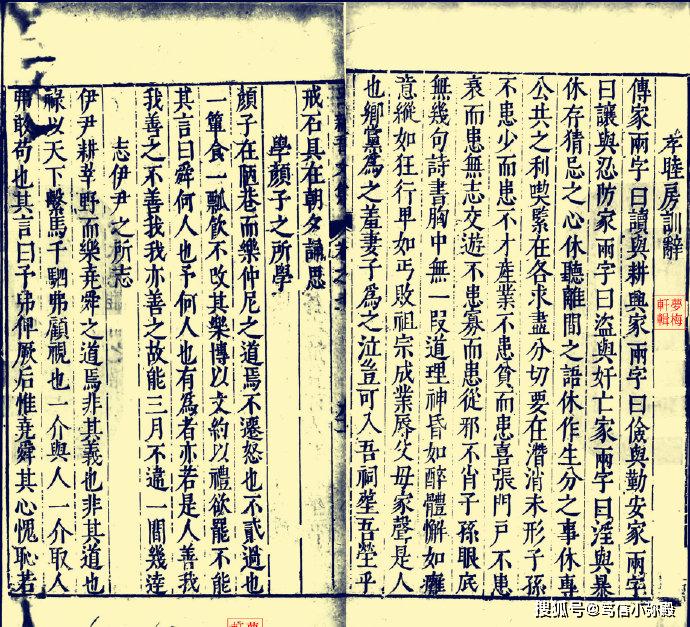 孝睦房訓辭
傳家兩字曰讀與耕興家兩字曰儉與勤安家兩字
曰讓與忍防家兩字曰盜與奸亡家兩字曰淫與暴
休存猜忌之心休聽離間之語休作生分之事休專
公共之利喫緊在各求盡分切要在潛消未形子孫
不患少而患不才產業不患貧而患喜張門戶不患
衰而患無志交遊不患寡而患從邪不肖子孫眼底
無幾句詩書胸中無一段道理神昏如醉體懈如癱
意縱如狂行卑如丐敗祖宗成業辱父母家聲是人
也鄉黨為之羞妻子為之泣豈可入吾祠塟吾塋乎
戒石具在朝夕誦思
學顏子之所學
顏子在陋巷而樂仲尼之道焉不遷怒也不貳過也
一簞食一瓢飲不改其樂博以文約以禮欲罷不能
其言曰舜何人也予何人也有為者亦若是人善我
我善之不善我我亦善之故能三月不違一間幾達
志伊尹之所志
伊尹耕莘野而樂堯舜之道焉非其義也非其道也
祿以天下繫馬千駟弗顧視也一介與人一介取人
弗敢苟也其言曰予弗俾厥后惟堯舜其心愧恥若
夢梅
軒輯
搜狐号@笃信小弥殿